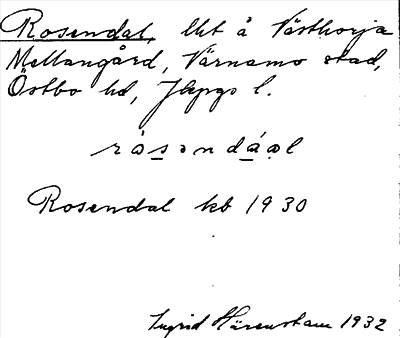 Rosendal, lht å Västhorja
Mellangård, Värnamo stad,
Östbo hd, Jkpgs l.
rósəndáal
Rosendal kb 1930
Ingrid Härenstam 1932